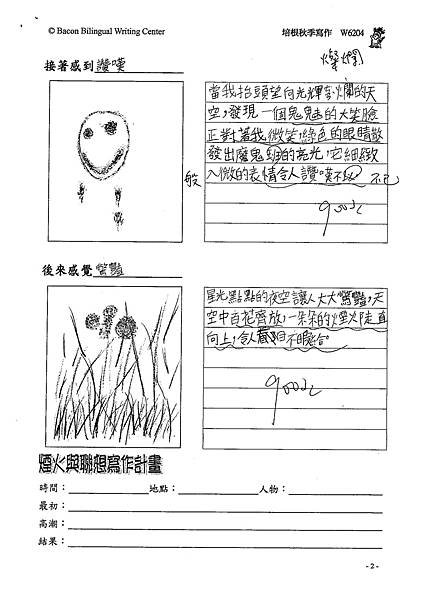 © Bacon Bilingual Writing Center
培根秋季寫作 W6204
燦爛
接著感到 讚嘆
當我抬頭望向光輝燦爛的天
空,發現一個鬼魅的大笑臉
正對著我微笑,綠色的眼睛散
發出魔鬼般的亮光,它細緻
般
入微的表情令人讚嘆不
不已
good
後來感覺 驚豔
星光點點的夜空讓人大大驚豔,天
空中百花齊放,一朵朵的煙火
向上,令人 不暇給。
good
煙火與聯想寫作計畫
時間: 地點: 人物:
最初:
高潮:
結果:
- 2 -